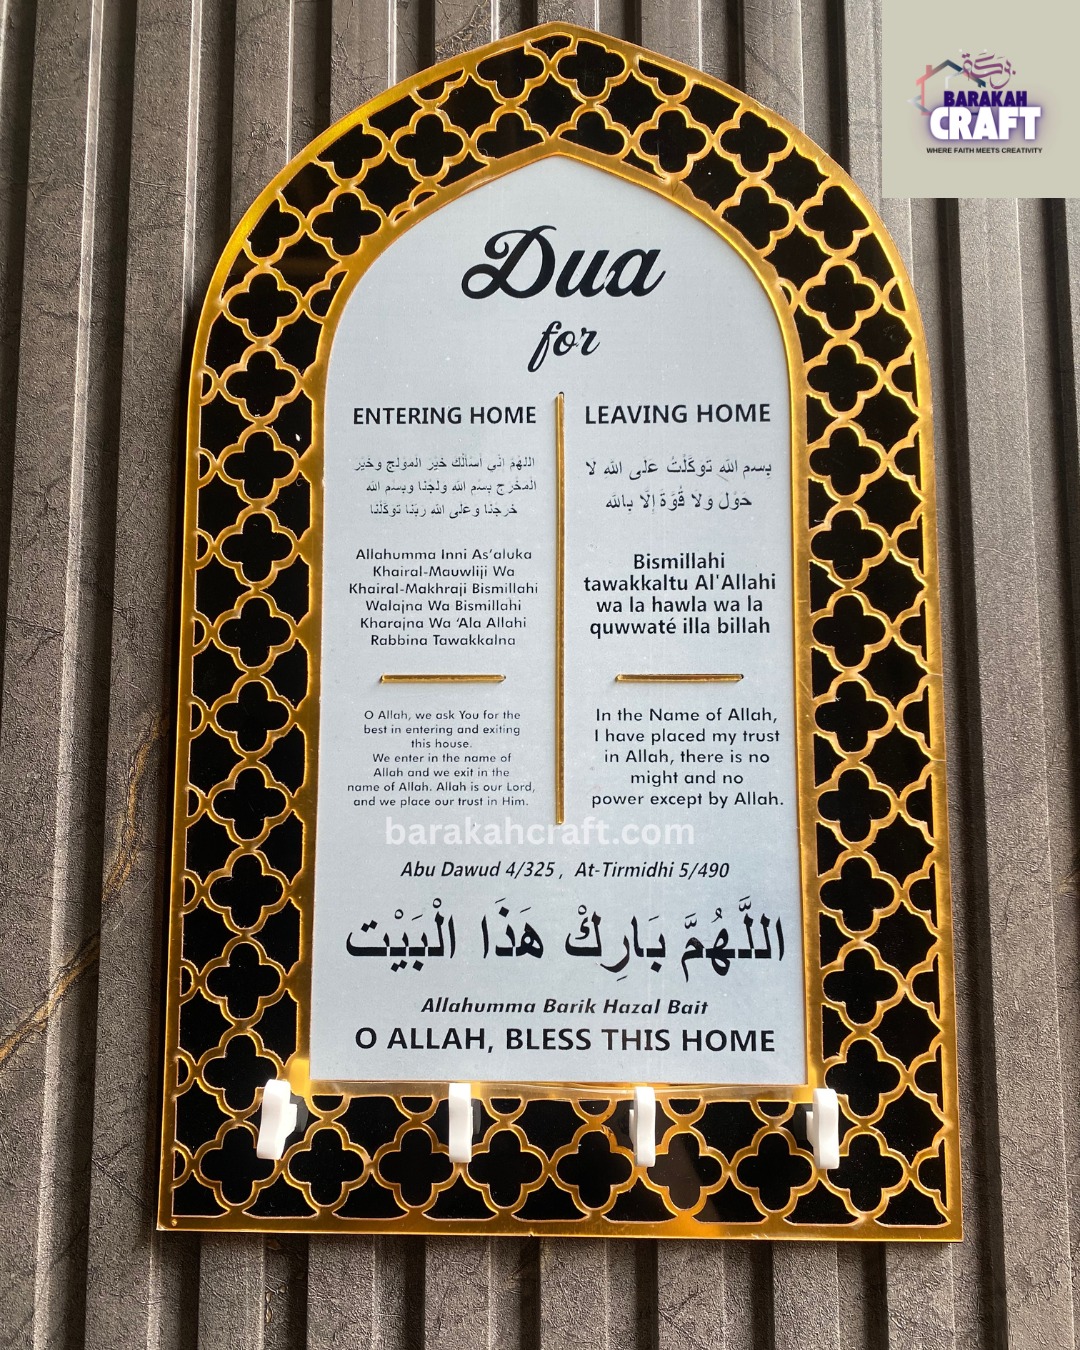 بركة
BARAKAH
CRAFT
WHERE FAITH MEETS CREATIVITY
Dua
for
ENTERING HOME
اللهُمَّ انِّي اَسْألُكَ خَيْر المَولج وخَيْر
المخْرج بِسْمِ الله ولجْنا وبِسْم الله
خَرجنا وعلى الله ربّنا توكّلْنا
Allahumma Inni As'aluka
Khairal-Mauwliji Wa
Khairal-Makhraji Bismillahi
Walajna Wa Bismillahi
Kharajna Wa ‘Ala Allahi
Rabbina Tawakkalna
O Allah, we ask You for the
best in entering and exiting
this house.
We enter in the name of
Allah and we exit in the
name of Allah. Allah is our Lord,
and we place our trust in Him.
LEAVING HOME
بِسمِ اللهِ تَوَكَّلْتُ عَلَى اللهِ لَا
حَوْل ولا قُوَّةَ إِلَّا بِالله
Bismillahi
tawakkaltu Al'Allahi
wa la hawla wa la
quwwaté illa billah
In the Name of Allah,
I have placed my trust
in Allah, there is no
might and no
power except by Allah.
barakahcraft.com
Abu Dawud 4/325 , At-Tirmidhi 5/490
اللَّهُمَّ بَارِكْ هَذَا الْبَيْت
Allahumma Barik Hazal Bait
O ALLAH, BLESS THIS HOME